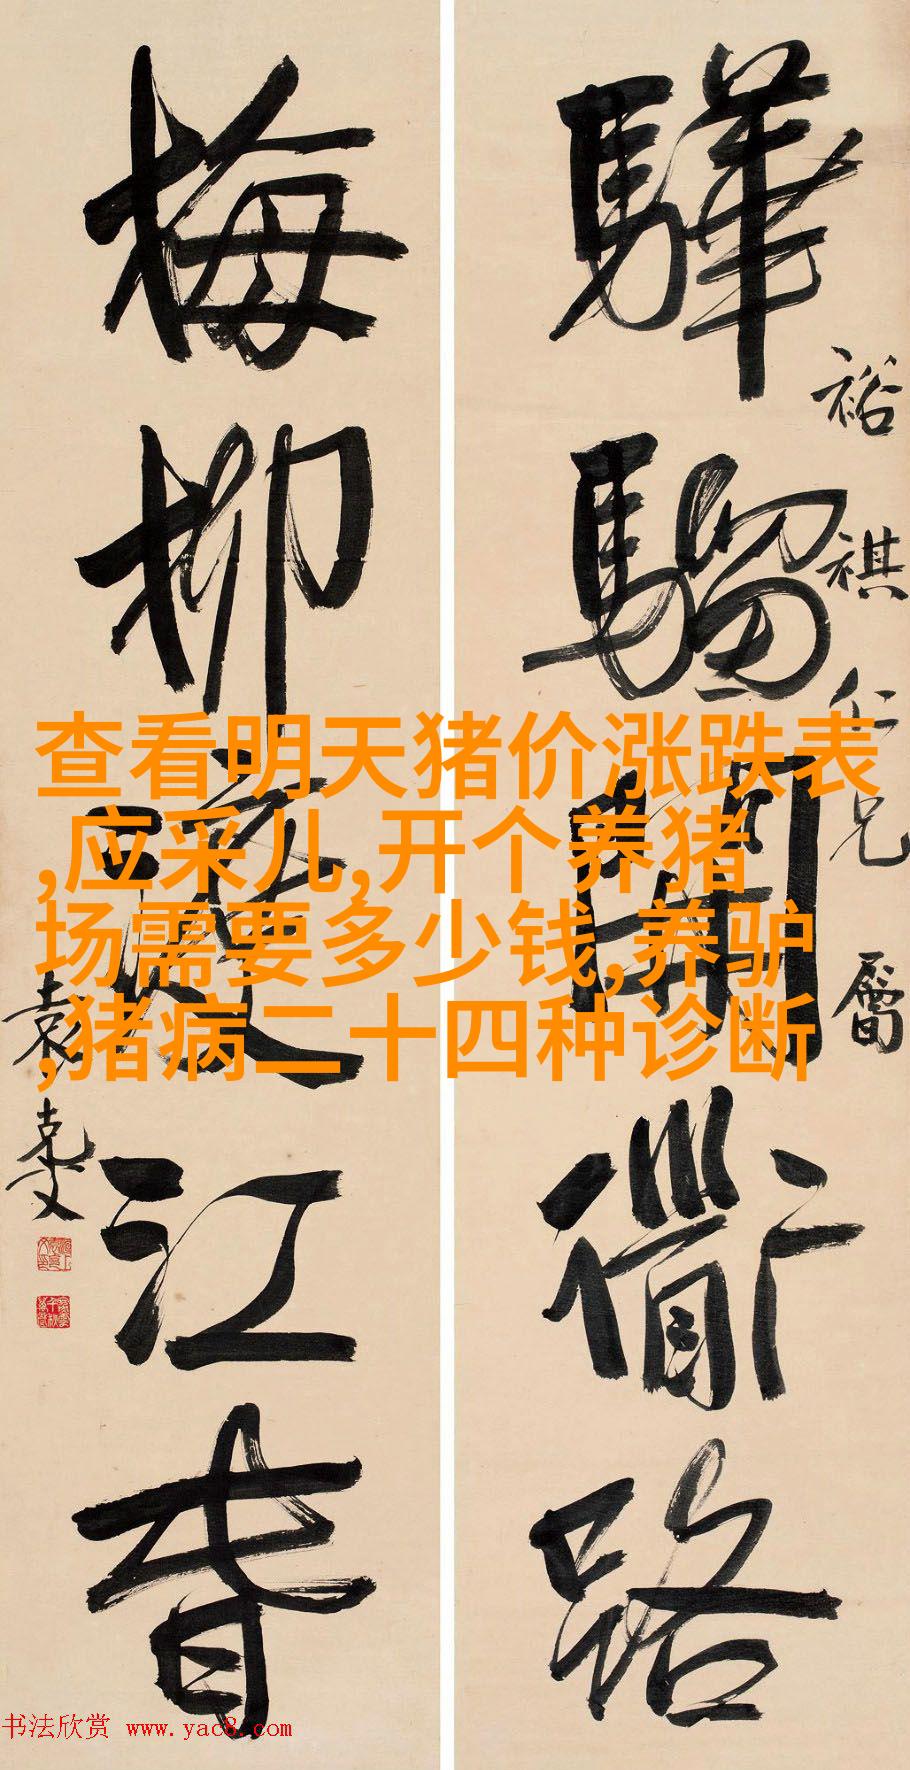 驊騮開道路
裕祺仁兄屬
梅柳渡江春
袁克文
查看明天猪价涨跌表
,应采儿,开个养猪
场需要多少钱,养驴
,猪病二十四种诊断
书法欣赏 www.yac8.com